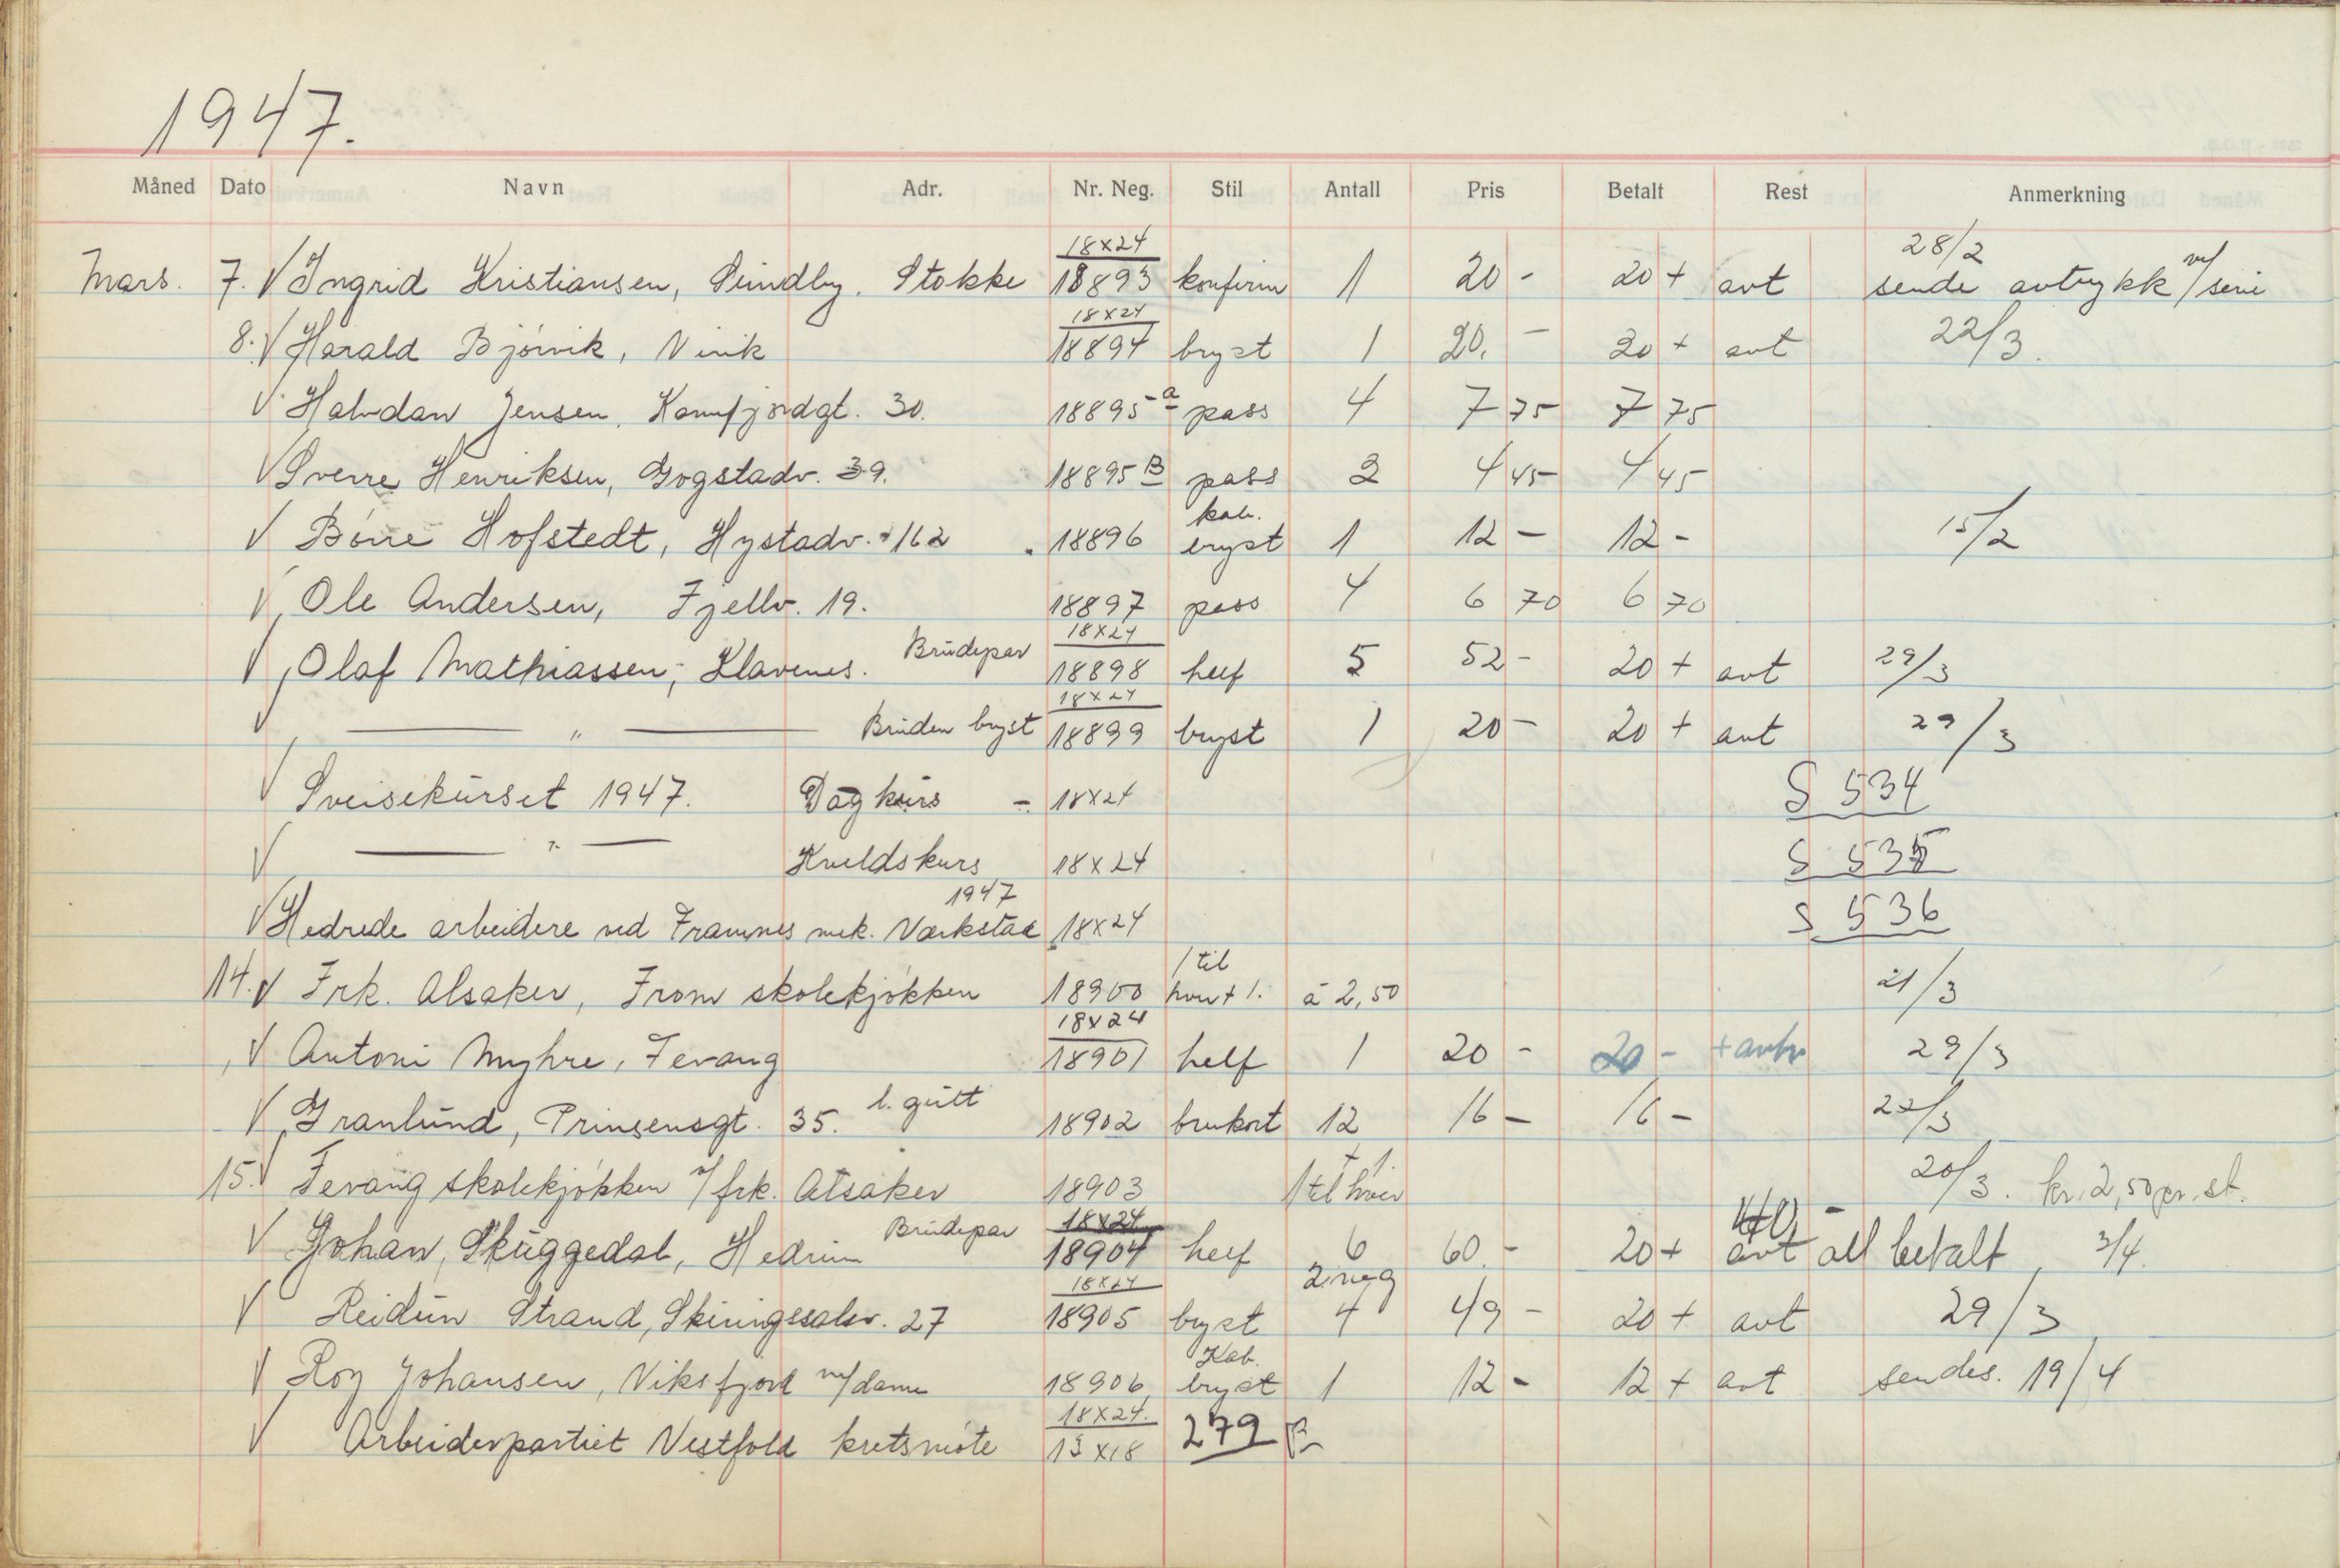 1947.
Måned Dato Navn Adr. Nr. Neg. Stil Antall Pris Betalt Rest Anmerkning
18x24 28/2
Mars. 7. √ Ingrid Kristiansen, Sundby. Stokke 18893 konfirm 1 20 - 20 + avt sende avtrykk m/ serie
18x24
8. √ Harald Bjørvik, Virik 18894 bryst 1 20. - 20 + avt 22/3.
√ Halvdan Jensen, Kamfjordgt. 30. 18895 a pass 4 7 75 7 75
√ Sverre Henriksen, Gogstadv. 39. 18895 B pass 2 4 45 4 45
kab.
√ Børre Hofstedt, Hystadv. 162 18896 bryst 1 12 - 12 - 15/2
√ Ole Andersen, Fjellv. 19. 18897 pass 4 6 70 6 70
18x24
√ Olaf Mathiassen, Klavenes. Brudepar 18898 helf 5 52 - 20 + avt 29/3
18x24
√ — " — Bruden bryst 18899 bryst 1 20 - 20 + avt 29/3
√ Sveisekurset 1947. Dag kurs - 18x24 S 534
√ — " — Kveldskurs 18x24 S 535
1947
√ Hedrede arbeidere ved Framnes mek. Værkstad 18x24 S 536
1 til
14. √ Frk. Alsaker, Fram skolekjøkken 18900 hver + 1. à 2,50 21/3
18x24
√ Antoni Myhre, Fevang 18901 helf 1 20 - 20 - + avtr 29/3
√ Granlund, Prinsensgt. 35. l. gutt 18902 brukort 12 16 - 16 - 22/3
+ 1.
15. √ Fevang skolekjøkken v/ frk. Alsaker 18903 1 til hver 20/3. kr. 2,50 pr. st.
18x24 40 -
√ Johan, Skuggedal, Hedrum Brudepar 18904 helf 6 60. - 20 + avt alt betalt 3/4.
18x24 2 neg
√ Reidun Strand, Skiringssalsv. 27 18905 bryst 4 49 - 20 + avt 29/3
Kab.
√ Roy Johansen, Viksfjord m/dame 18906 bryst 1 12 - 12 + avt sendes. 19/4
18x24.
√ Arbeiderpartiet Vestfold kretsmøte 13x18 279 B